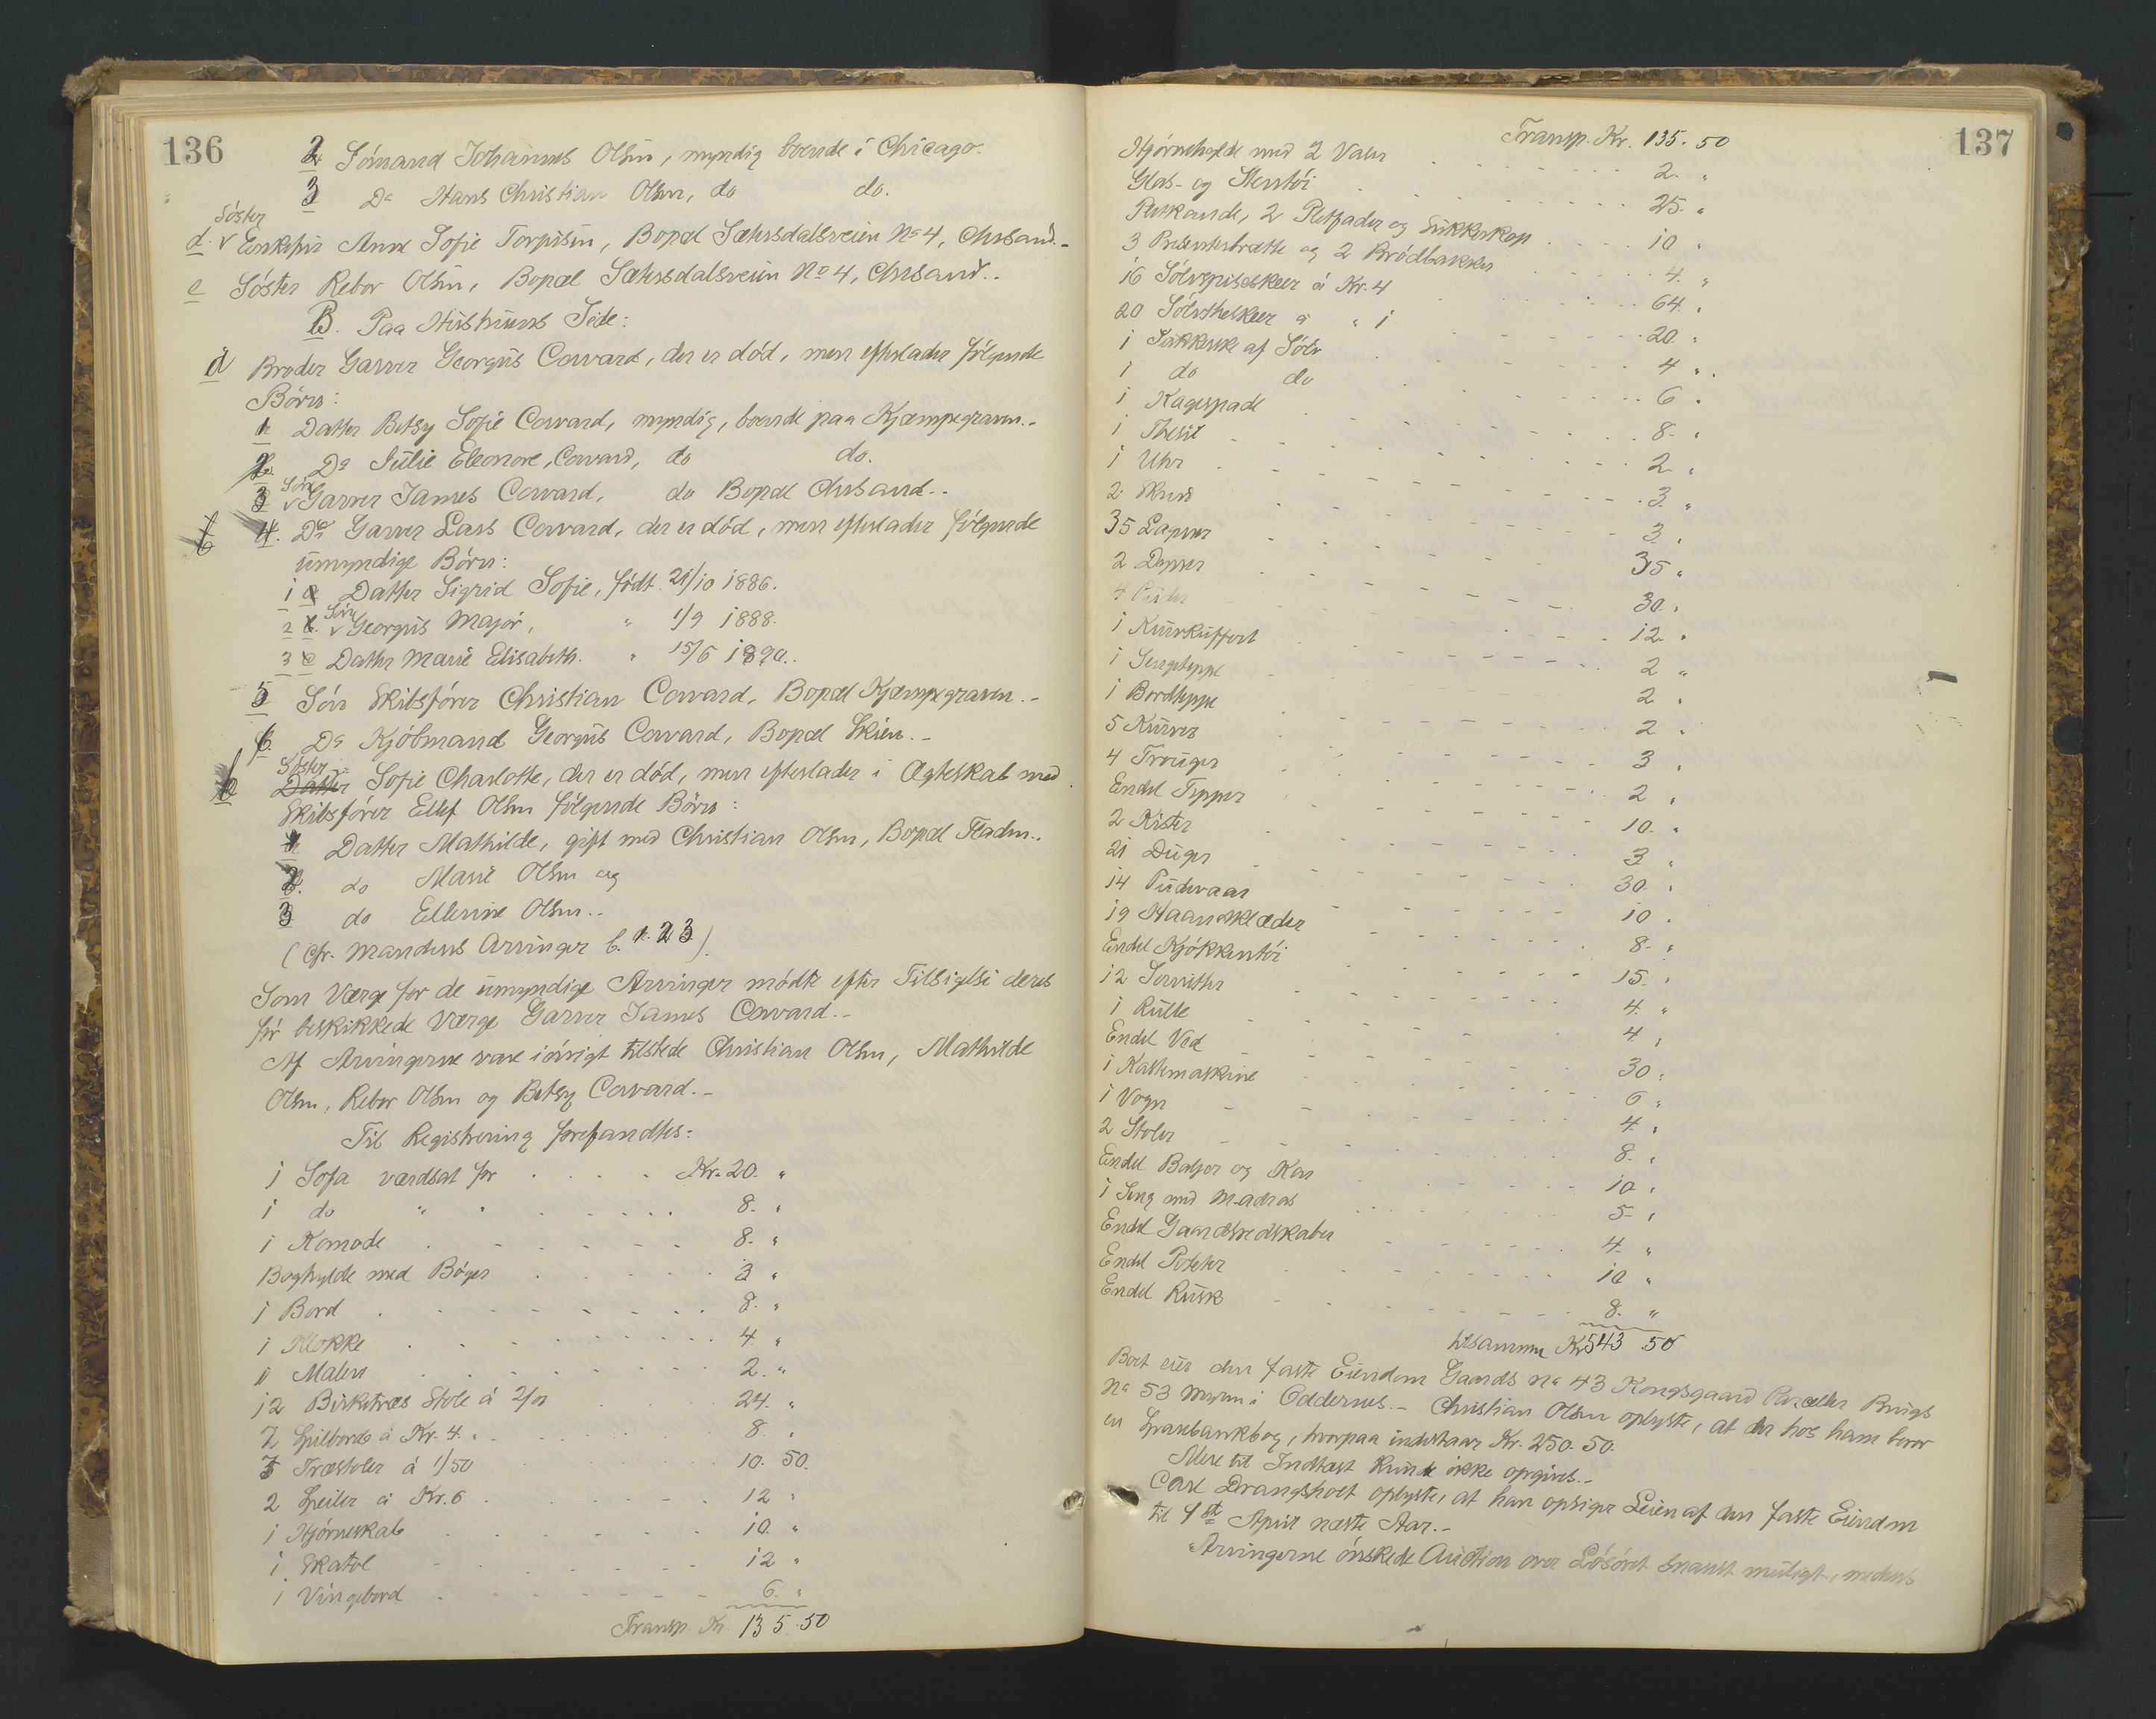 136
2 Sömand Johannes Olsen, myndig boende i Chicago.
3 Do Hans Christian Olsen, do do.
Söster
d. v Enkefru Anne Sofie Torgisen, Bopæl Sætersdalsveien No 4, Chrsand.-
e Söster Rebor Olsen, Bopæl Sætersdalsveien No 4, Chrsand..
B. Paa Hustruens Side:
a Broder Garver Georgus Coward, der er död, men efterlader fölgende
Börn:
1 Datter Betsy Sofie Coward, myndig, boende paa Kjæmpegraven.-
2 Do Julie Eleonore, Coward, do do.
Sön
3 v Garver James Coward, do Bopæl Chrsand..
4. Do Garver Lars Coward, der er död, men efterlader fölgende
umyndige Börn:
1 a Datter Sigrid Sofie, födt 21/10 1886.
2 b. Sön v Georgus Major, " 1/9 1888.
3 c Datter Marie Elisabeth. " 15/6 1890..
5 Sön Skibsförer Christian Coward, Bopæl Kjæmpegraven.-
6. Do Kjöbmand Georgus Coward, Bopæl Skien.-
Söster
b Datter Sofie Charlotte, der er död, men efterlader i Ægteskab med
Skibsförer Ellef Olsen fölgende Börn:
1 Datter Mathilde, gift med Christian Olsen, Bopæl Fladen..
2. do Marie Olsen og
3 do Ellevine Olsen..
(cfr. Mandens Arvinger b. 1. 2 3.)
Som Værge for de umyndige Arvinger mödte efter Tilsigelse deres
för beskikkede Værge Garver James Coward..
Af Arvingerne vare iövrigt tilstede Christian Olsen, Mathilde
Olsen, Rebor Olsen og Betsy Coward.-
Til Registrering forefandtes:
1 Sofa værdsat for . . . . Kr. 20. "
1 do " " . . . . . 8. "
1 Komode . . . . . . 8. "
Boghylde med Böger . . . . . 3 "
1 Bord . . . . . . . 8. "
1 Klokke . . . . . . . 4. "
11 Malerier . . . . . . 2. "
12 Birketræs Stole á 2/00 . . . 24. "
2 Spilborde á Kr. 4. . . . . . 8. "
7 Træstoler á 1/50 . . . . 10. 50.
2 Speiler á Kr. 6 . . . . . 12 "
1 Hjörneskab . . . . . . 10. "
1 Skatol - . . . . . 12 "
1 Vingebord . . . . . . 6. "
Transp. Kr. 135.50
137
Transp. Kr. 135. 50
Hjörnehylde med 2 Vaser . . . . . . 2. "
Glas- og Stentöi . . . . . . 25. "
Pletkande, 2 Pletfader og Sukkerkop . . . . 10 "
3 Presenterbrætte og 2 Brödbakker . . . . 4. "
16 Sölvspiseskeer á Kr. 4 . . . . . 64. "
20 Sölvtheskeer á " 1 . . . . . 20. "
1 Sukkerske af Sölv . . . . . 4 "
1 do do . . . . . 6 "
1 Kagespade . . . . . 8. "
1 Thesil . . . . . . 2. "
1 Uhr . . . . . . 3. "
2 Skrin . . . . . . 3. "
35 Lagner . . . . . . 35 "
2 Dyner . . . . . . 30. "
4 Puder . . . . . . 12. "
1 Kurvkuffert . . . . . . 2 "
1 Sengeteppe . . . . . . 2. "
1 Bordteppe . . . . . . 2 "
5 Kurver . . . . . . 3 "
4 Trouger . . . . . . 2 "
Endel Tepper . . . . . . 10. "
2 Kister . . . . . . 3 "
21 Duger . . . . . . 30. "
14 Pudevaar . . . . . . 10 "
19 Haandklæder . . . . . . 8. "
Endel Kjökkentöi . . . . . . 15. "
12 Servietter . . . . . . 4. "
1 Rulle . . . . . . 4 "
Endel Ved . . . . . . 30 "
1 Kastemaskine . . . . . . 6 "
1 Vogn . . . . . . 4. "
2 Stoler . . . . . . 8. "
Endel Baljer og Kar . . . . . . 10 "
1 Seng med Madras . . . . . . 5 "
Endel Gaardsredskaber . . . . . . 4. "
Endel Poteter . . . . . . 10 "
Endel Rusk . . . . . . 8. "
tilsammen Kr 543 50
Boet eier den faste Eiendom Gaards No 43 Kongsgaard Parceller Brugs
No 53 Myren i Oddernes.- Christian Olsen oplyste, at der hos ham beror
en Sparebankbog, hvorpaa indestaar Kr. 250. 50.
Mere til Indtægt kunde ikke opgives.-
Carl Drangsholt oplyste, at han opsiger Leien af den faste Eiendom
til 1ste April næste Aar.-
Arvingerne önskede Auction over Lösöret snarest muligt, medens